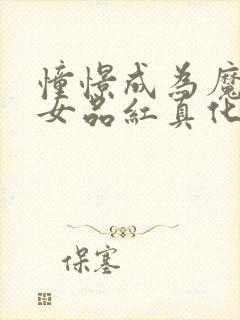 憧憬成为魔
女品紅真化
保塞